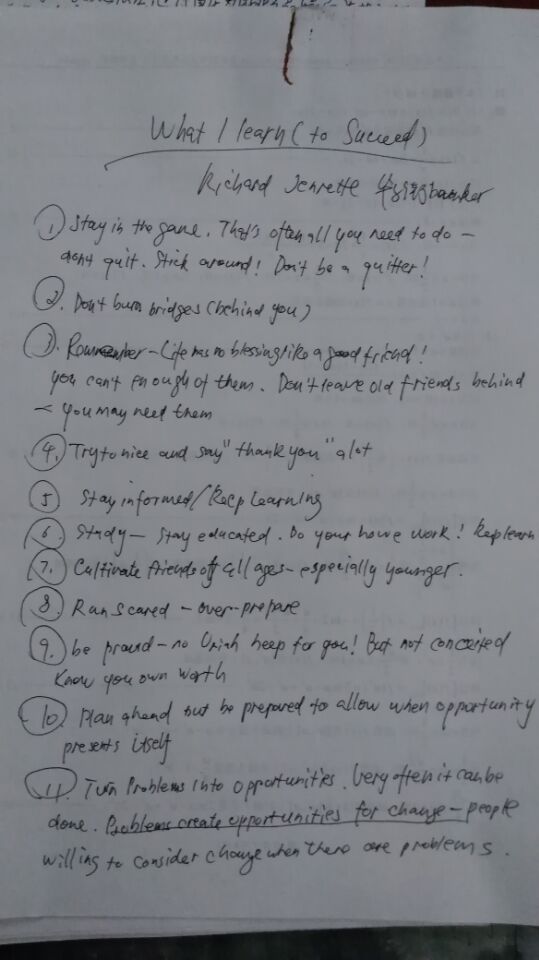 What I learn (to Succeed)
Richard Jenrette 华尔街banker
① Stay in the game. That's often all you need to do –
don't quit. Stick around! Don't be a quitter!
②. Don't burn bridges (behind you)
③. Remember – Life has no blessing like a good friend!
you can't enough of them. Don't leave old friends behind
< you may need them
④. Try to nice and say "thank you" a lot
⑤ Stay informed/Keep Learning
⑥. Study – Stay educated. Do your home work! Keep learn
⑦. Cultivate friends of all ages – especially younger.
⑧. Run Scared – over-prepare
⑨. be proud – no Uriah heep for you! But not conceited
Know you own worth
⑩. Plan ahead but be prepared to allow when opportunity
presents itself
⑪. Turn Problems into opportunities. Very often it can be
done. Problems create opportunities for change – people
willing to consider change when there are problems.